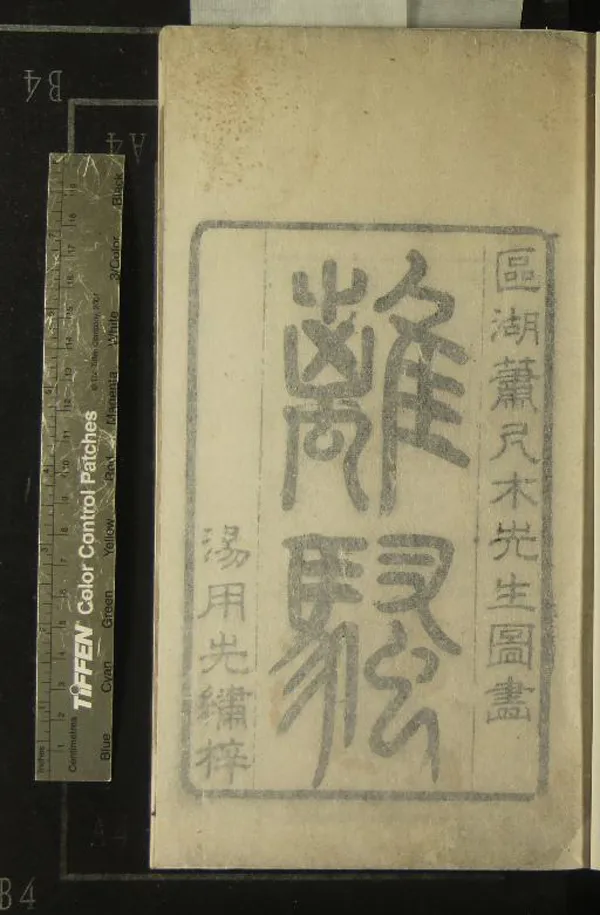 區湖蕭尺木先生圖畫
離騷
湯用先繡梓
B4
A4
Inches
Centimetres
TIFFEN Color Control Patches
© The Tiffen Company, 2007
Blue Cyan Green Yellow Red Magenta White 3/Color Black
1 2 3 4 5 6 7 8 9 10 11 12 13 14 15 16 17 18 19
B4